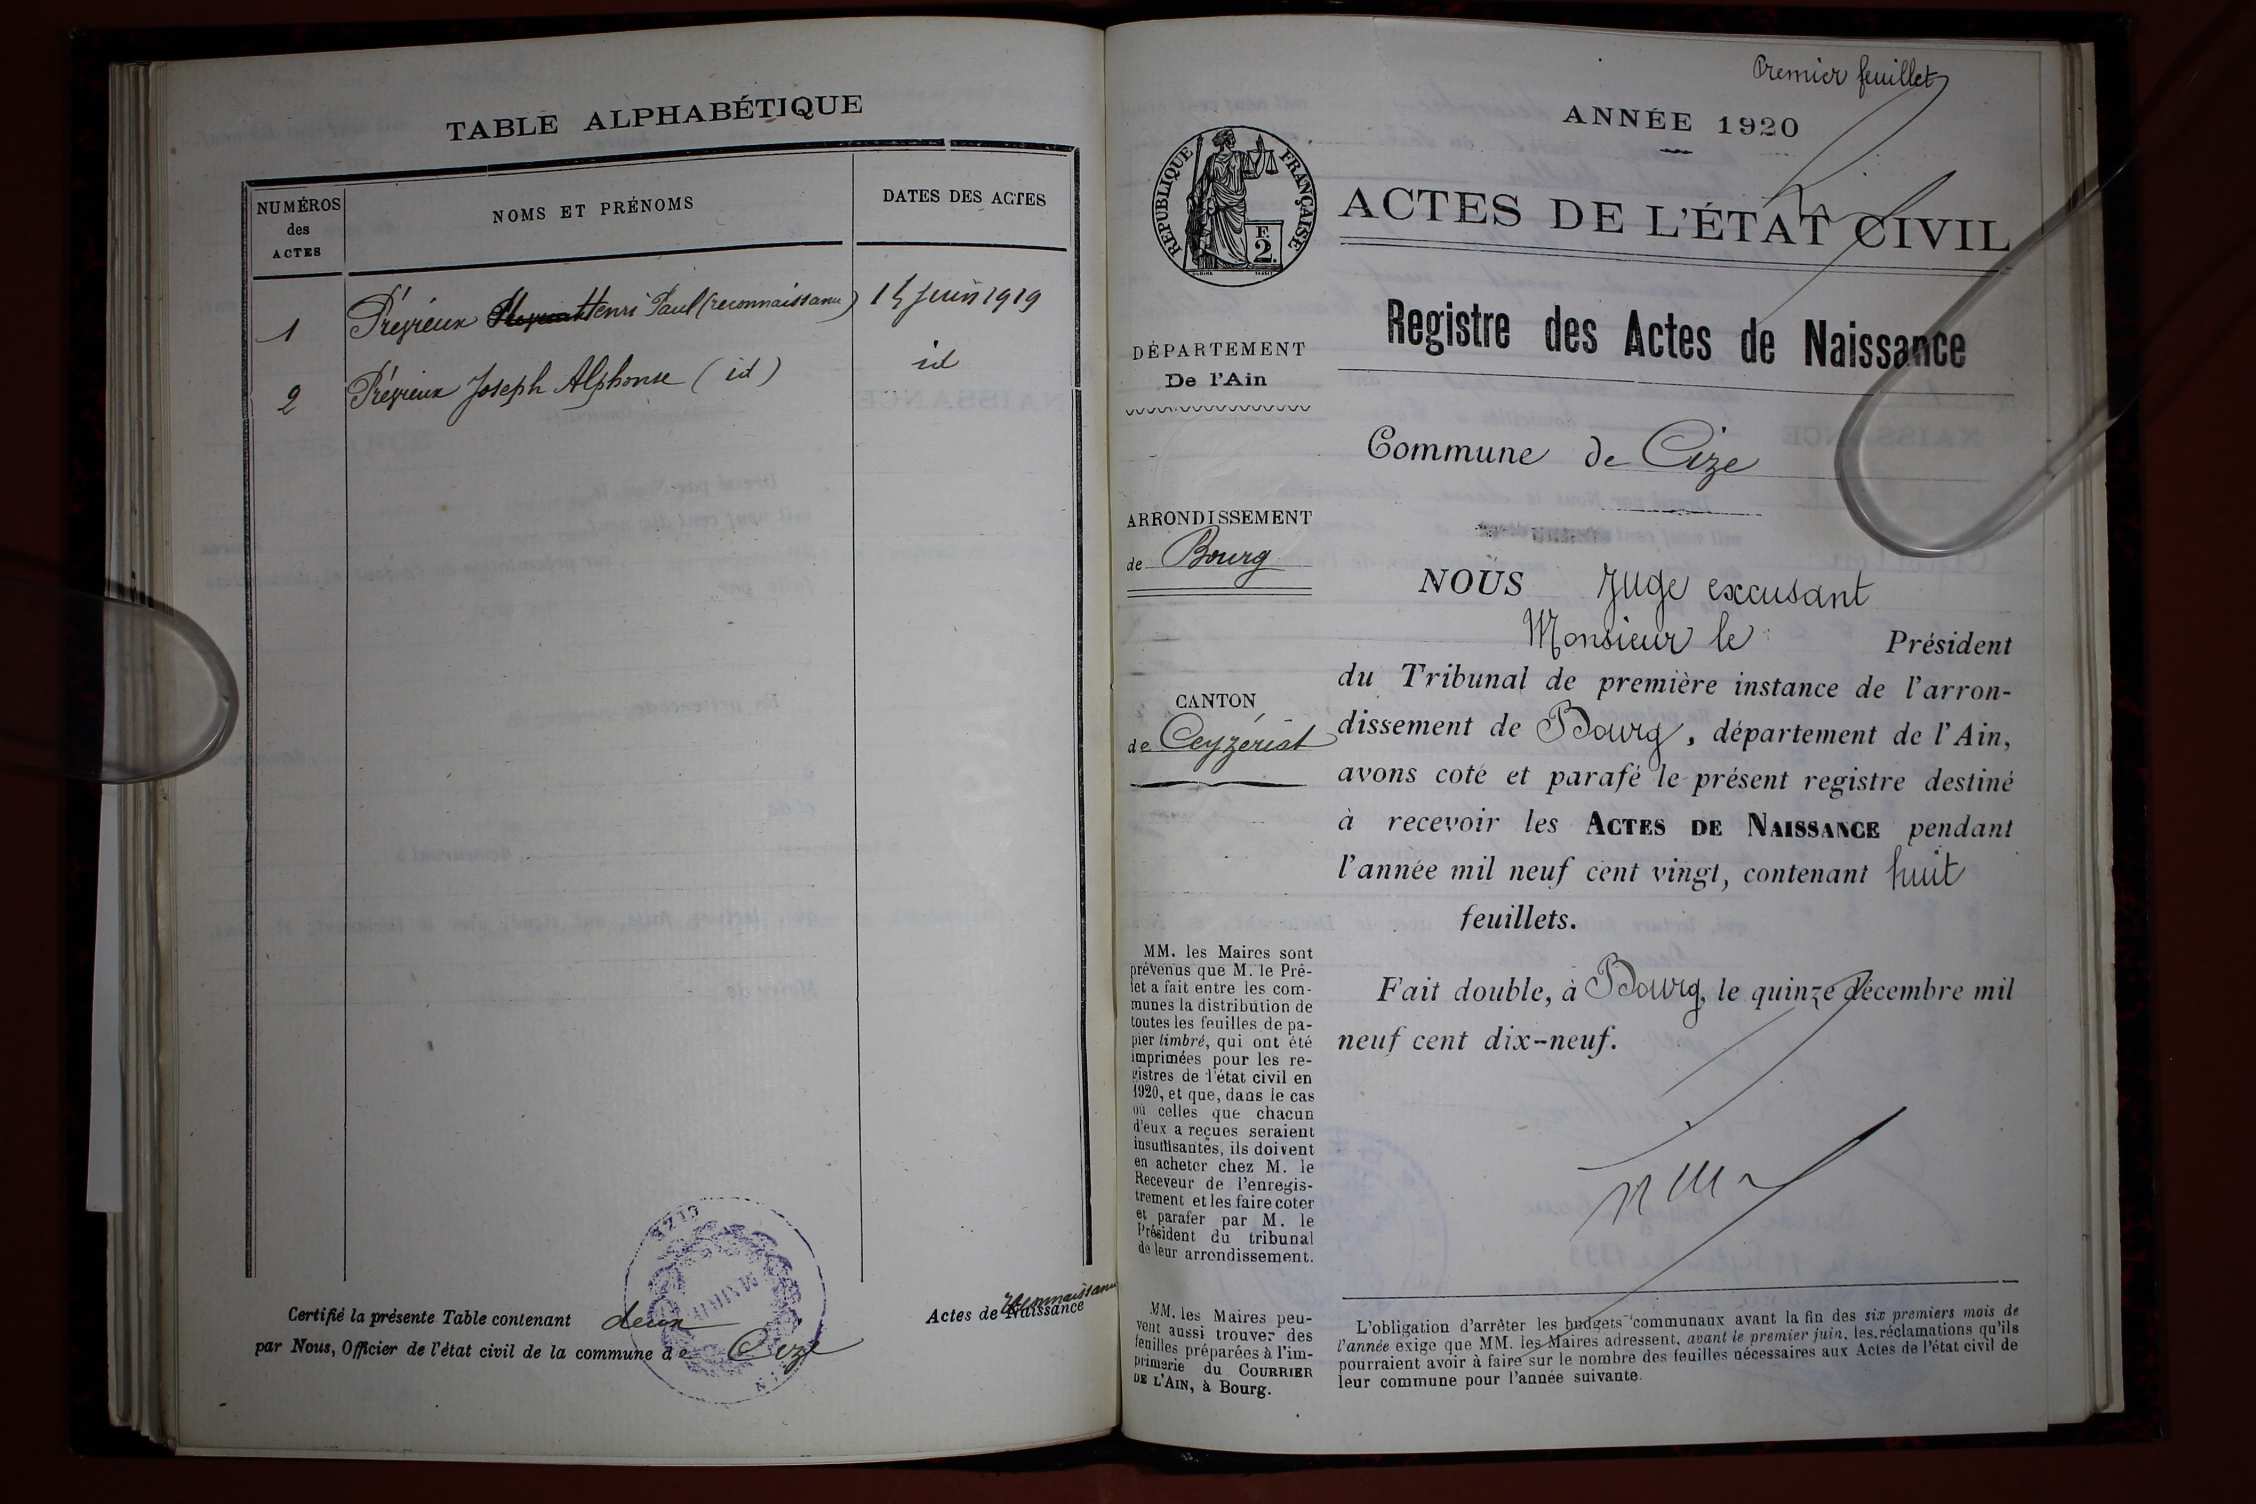 TABLE ALPHABÉTIQUE
NUMÉROS
des
ACTES
NOMS ET PRÉNOMS
DATES DES ACTES
1 Préyieux Henri Paul (reconnaissance) 14 Juin 1919
2 Préyieux Joseph Alphonse (id) id
Certifié la présente Table contenant deux Actes de Naissance reconnaissance
par Nous, Officier de l'état civil de la commune de Cize
MAIRIE
CIZE
Premier feuillet
ANNÉE 1920
RÉPUBLIQUE FRANÇAISE
F.
2.
ACTES DE L'ÉTAT CIVIL
Registre des Actes de Naissance
DÉPARTEMENT
De l'Ain
Commune de Cize
ARRONDISSEMENT
de Bourg
CANTON
de Ceyzériat
NOUS Juge excusant
Monsieur le Président
du Tribunal de première instance de l'arron-
dissement de Bourg, département de l'Ain,
avons coté et parafé le présent registre destiné
à recevoir les ACTES DE NAISSANCE pendant
l'année mil neuf cent vingt, contenant huit
feuillets.
Fait double, à Bourg, le quinze décembre mil
neuf cent dix-neuf.
MM. les Maires sont
prévenus que M. le Pré-
fet a fait entre les com-
munes la distribution de
toutes les feuilles de pa-
pier timbré, qui ont été
imprimées pour les re-
gistres de l'état civil en
1920, et que, dans le cas
où celles que chacun
d'eux a reçues seraient
insuffisantes, ils doivent
en acheter chez M. le
Receveur de l'enregis-
trement et les faire coter
et parafer par M. le
Président du tribunal
de leur arrondissement.
MM. les Maires peu-
vent aussi trouver des
feuilles préparées à l'im-
primerie du COURRIER
DE L'AIN, à Bourg.
L'obligation d'arrêter les budgets communaux avant la fin des six premiers mois de
l'année exige que MM. les Maires adressent, avant le premier juin, les réclamations qu'ils
pourraient avoir à faire sur le nombre des feuilles nécessaires aux Actes de l'état civil de
leur commune pour l'année suivante.